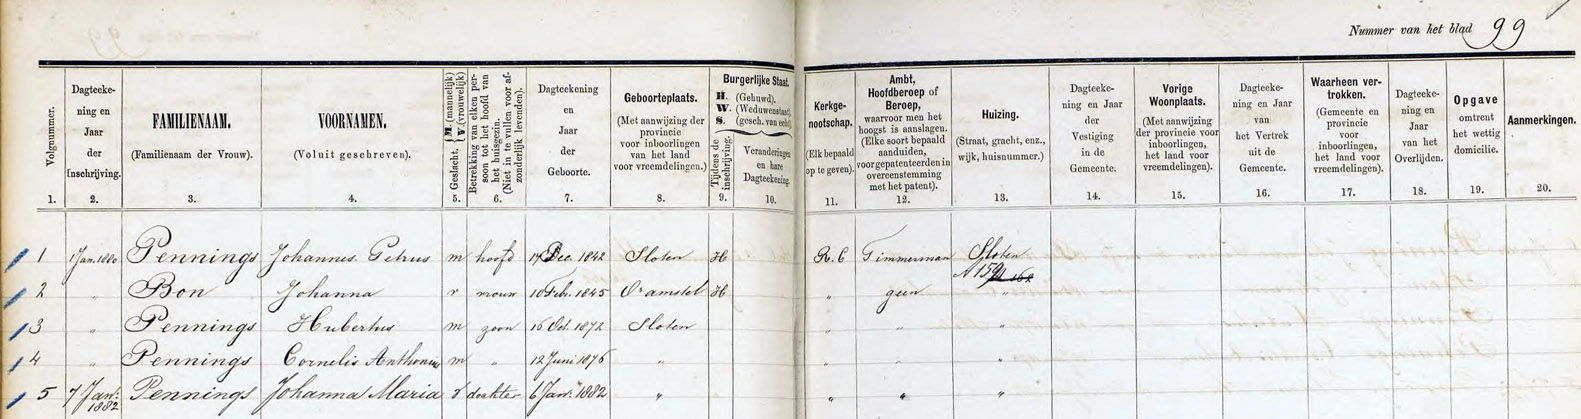 Nummer van het blad 99
Volgnummer. 1.
Dagteeke-
ning en
Jaar
der
Inschrijving.
2.
FAMILIENAAM.
(Familienaam der Vrouw).
3.
VOORNAMEN.
(Voluit geschreven).
4.
Geslacht. M. (mannelijk)
V. (vrouwelijk)
5.
Betrekking van elken per-
soon tot het hoofd van
het huisgezin.
(Niet in te vullen voor af-
zonderlijk levenden).
6.
Dagteekening
en
Jaar
der
Geboorte.
7.
Geboorteplaats.
(Met aanwijzing der
provincie
voor inboorlingen
van het land
voor vreemdelingen.)
8.
Burgerlijke Staat.
H. (Gehuwd).
W. (Weduwenstaat).
S. (gesch. van echt).
Tijdens de
inschrijving.
9.
Veranderingen
en hare
Dagteekening.
10.
Kerkge-
nootschap.
(Elk bepaald
op te geven).
11.
Ambt,
Hoofdberoep of
Beroep,
waarvoor men het
hoogst is aanslagen.
(Elke soort bepaald
aanduiden,
voor gepatenteerden in
overeenstemming
met het patent).
12.
Huizing.
(Straat, gracht, enz.,
wijk, huisnummer.)
13.
Dagteeke-
ning en Jaar
der
Vestiging
in de
Gemeente.
14.
Vorige
Woonplaats.
(Met aanwijzing
der provincie voor
inboorlingen,
het land voor
vreemdelingen).
15.
Dagteeke-
ning en Jaar
van
het Vertrek
uit de
Gemeente.
16.
Waarheen ver-
trokken.
(Gemeente en
provincie
voor
inboorlingen,
het land voor
vreemdelingen).
17.
Dagteeke-
ning en
Jaar
van het
Overlijden.
18.
Opgave
omtrent
het wettig
domicilie.
19.
Aanmerkingen.
20.
1 1 Jan. 1880 Pennings Johannes Petrus m hoofd 17 Dec. 1842 Sloten H R.C Timmerman Sloten
A 159
2 " Bon Johanna v vrouw 10 Feb. 1845 Or amstel H " geen "
3 " Pennings Hubertus m zoon 16 Oct. 1872 Sloten " " "
4 " Pennings Cornelis Anthonius m " 12 Juni 1876 " " " "
5 7 Jan. 1882 Pennings Johanna Maria v dochter 6 Jan. 1882 " " " "